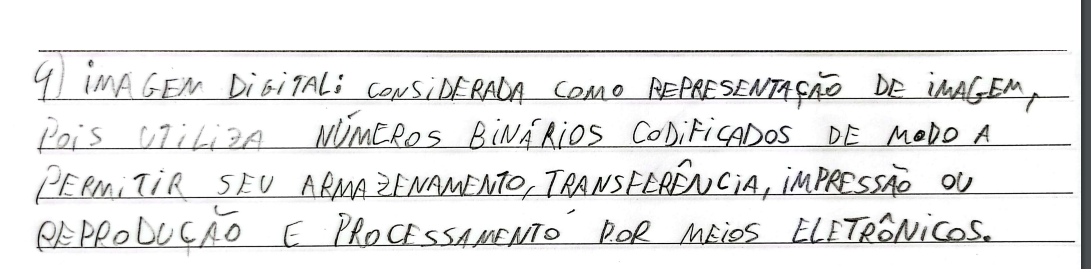 9) IMAGEM DIGITAL: CONSIDERADA COMO REPRESENTAÇÃO DE IMAGEM,
POIS UTILIZA NÚMEROS BINÁRIOS CODIFICADOS DE MODO A
PERMITIR SEU ARMAZENAMENTO, TRANSFERÊNCIA, IMPRESSÃO OU
REPRODUÇÃO E PROCESSAMENTO POR MEIOS ELETRÔNICOS.